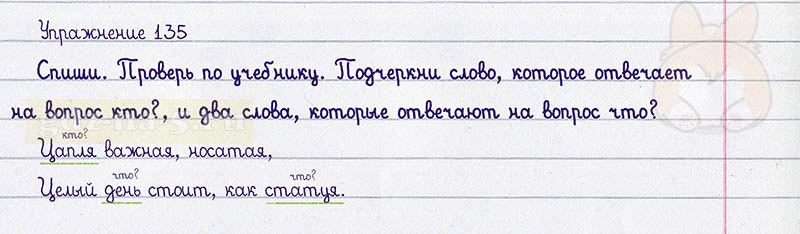 Упражнение 135
Спиши. Проверь по учебнику. Подчеркни слово, которое отвечает
на вопрос кто?, и два слова, которые отвечают на вопрос что?
кто?
Цапля важная, носатая,
что? что?
Целый день стоит, как статуя.